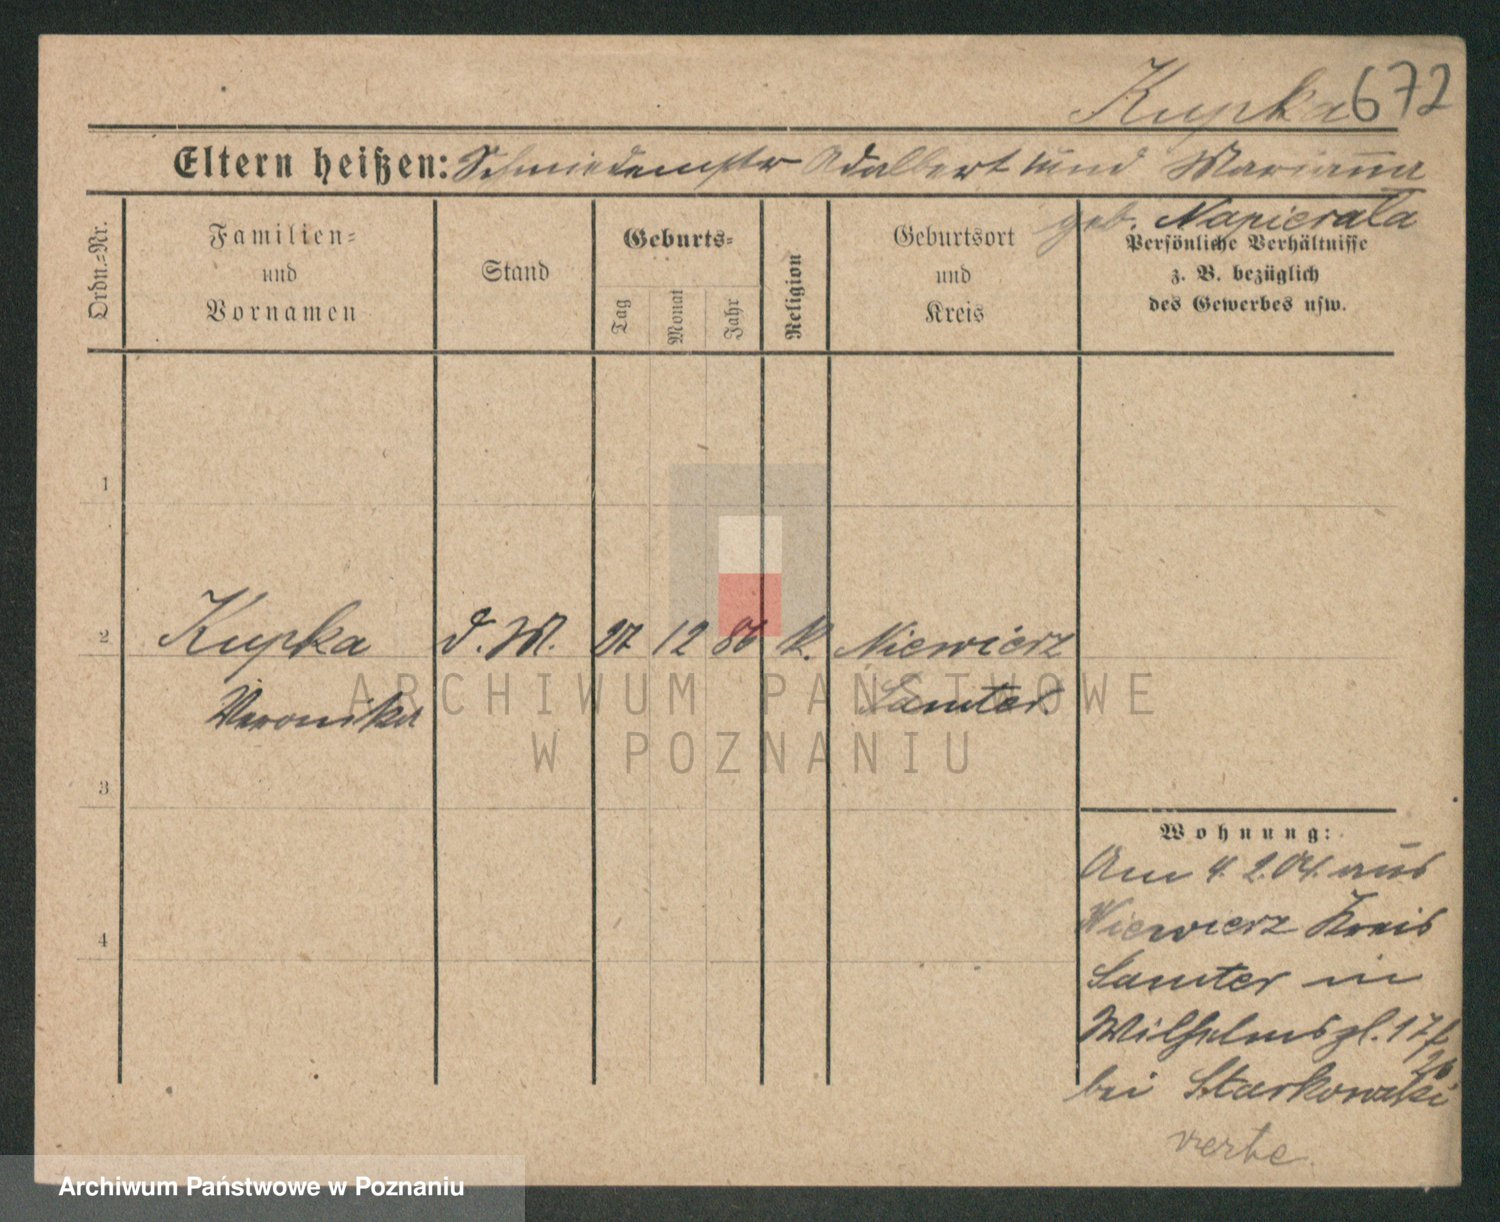 Kupka 672
Eltern heißen: Schmiedemstr Adalbert und Marianna
geb. Napierala
Ordn.-Nr.
Familien-
und
Vornamen
Stand
Geburts-
Tag
Monat
Jahr
Religion
Geburtsort
und
Kreis
Persönliche Verhältnisse
z. B. bezüglich
des Gewerbes usw.
1
2
Kupka d. M. 27 12 86 K. Niewierz
Veronika Samter.
3
4
Wohnung:
Am 4. 2. 04. aus
Niewierz Kreis
Samter in
Wilhelmspl. 17
bei Starkowski
ARCHIWUM PAŃSTWOWE
W POZNANIU
Archiwum Państwowe w Poznaniu